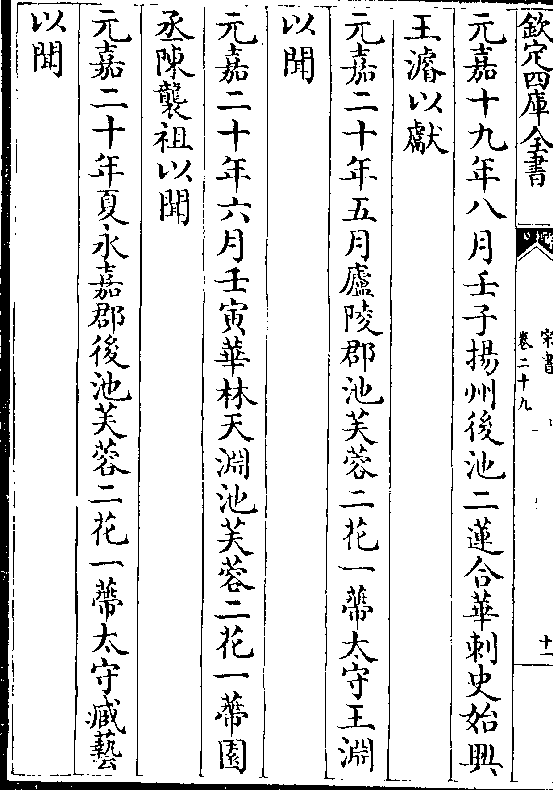 欽定四庫全書
宋書
卷二十九
十一
元嘉十九年八月壬子揚州後池二蓮合華刺史始興
王濬以獻
元嘉二十年五月廬陵郡池芙蓉二花一蔕太守王淵
以聞
元嘉二十年六月壬寅華林天淵池芙蓉二花一蔕園
丞陳襲祖以聞
元嘉二十年夏永嘉郡後池芙蓉二花一蔕太守臧藝
以聞